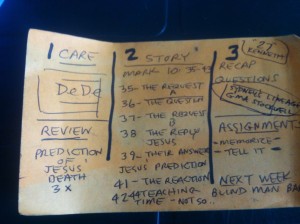 1 CARE
DeDe
REVIEW
PREDICTION
OF
JESUS
DEATH
3X
2 STORY
MARK 10:35-45
35- THE REQUEST A
36- THE QUESTION
37- THE REQUEST B
38 THE REPLY
JESUS
39- THEIR ANSWER
JESUS PREDICTION
41- THE REACTION
42-44 TEACHING
TIME - NOT SO..
3
RECAP
QUESTIONS
ASSIGNMENTS
- MEMORIZE
- TELL IT
NEXT WEEK
BLIND MAN